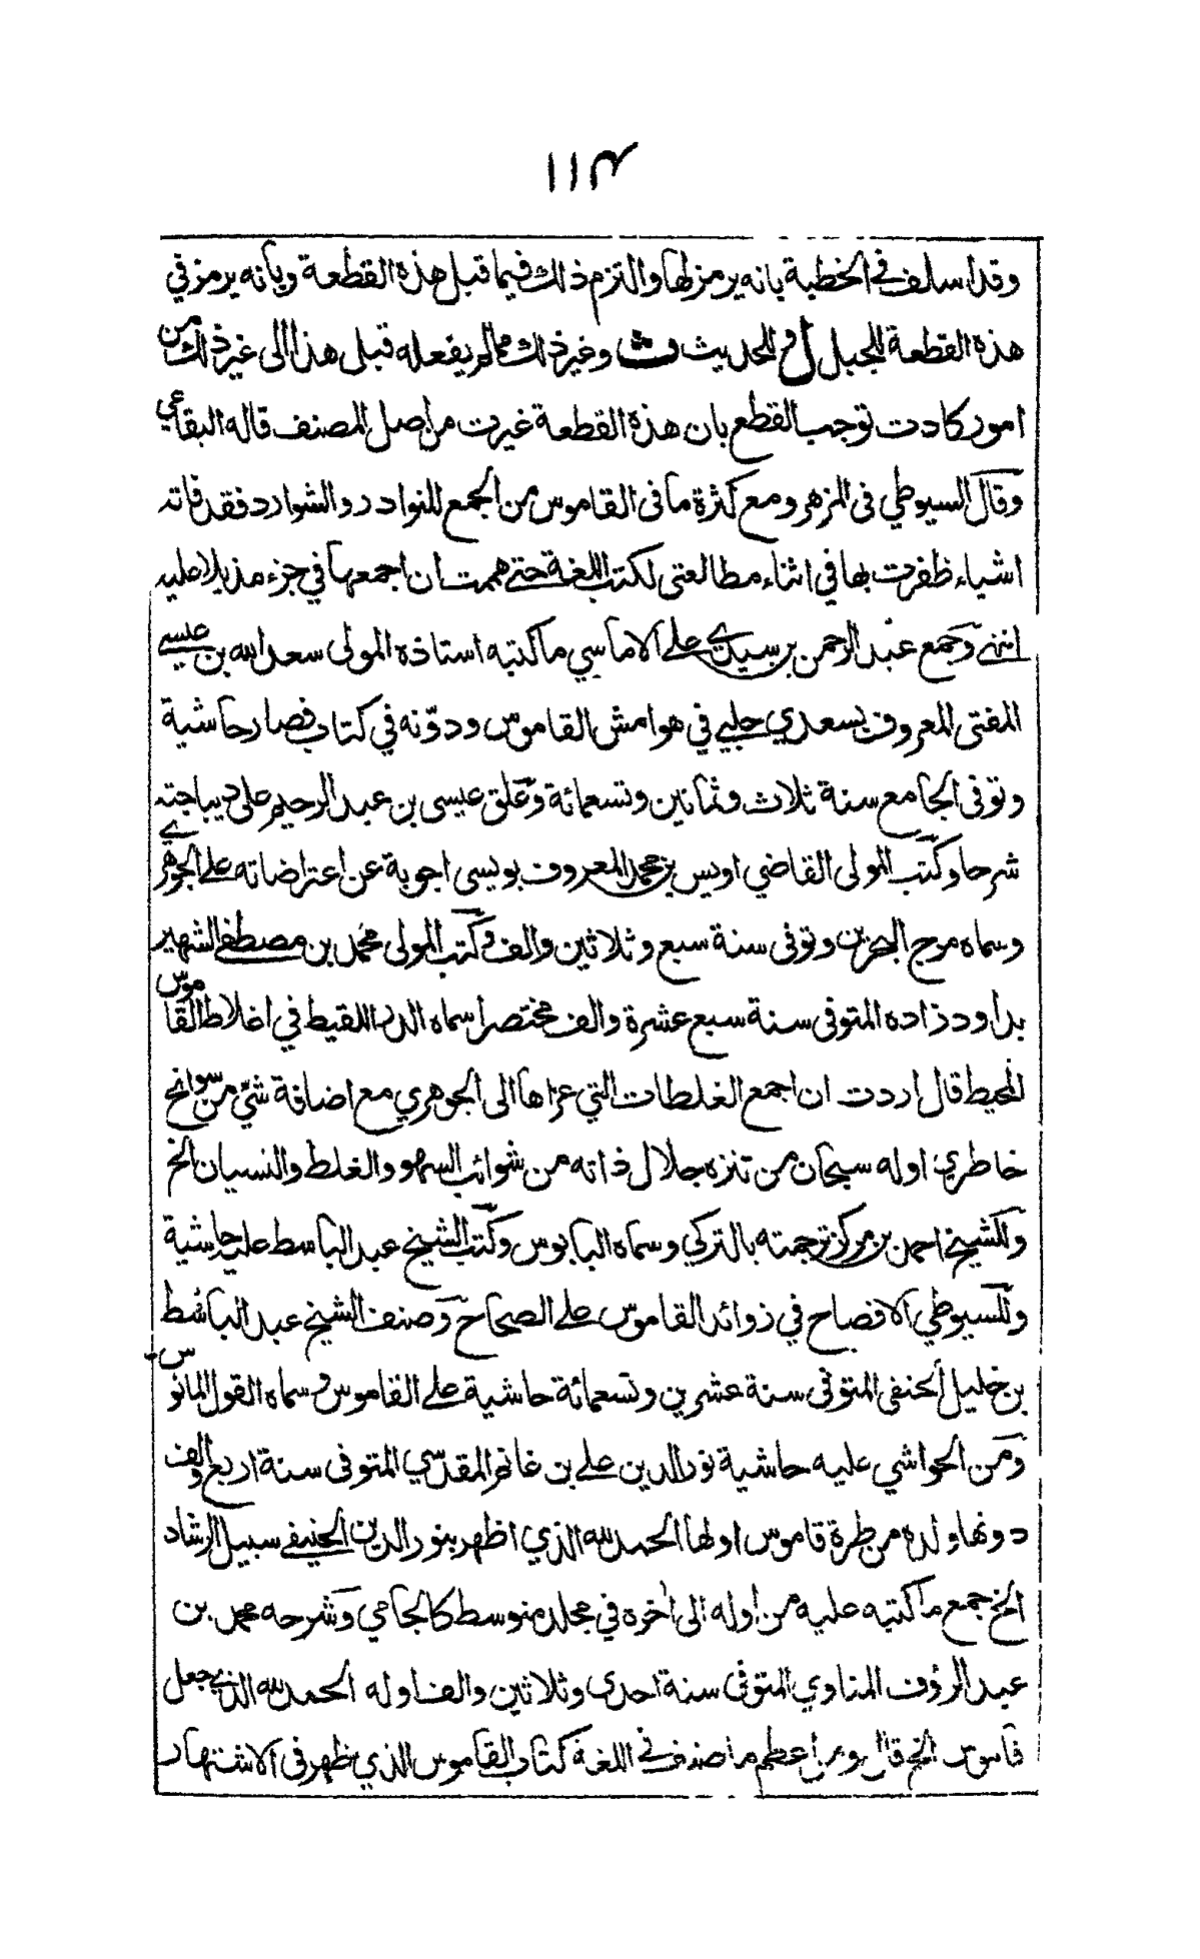 ١١٣
وقد اسلف في الخطبة بانه يرمز لها والتزم ذلك فيما قبل هذه القطعة وبانه يرمز في
هذه القطعة للجبل ل وللحديث ث وغير ذلك مما لم يفعله قبل هذا الى غير ذلك من
امور كادت توجب القطع بان هذه القطعة غيرت من اصل المصنف قاله البقاعي
وقال السيوطي فى المزهر ومع كثرة ما فى القاموس من الجمع للنوادر والشوارد فقد فاته
اشياء ظفرت بها في اثناء مطالعتى لكتب اللغة حتى هممت ان اجمعها في جزء مذيلا عليه
انتهى وجمع عبد الرحمن بن سيدي على الاماسي ما كتبه استاذه المولى سعد الله بن عيسى
المفتى المعروف بسعدي جلبي في هوامش القاموس ودوّنه في كتاب فصار حاشية
وتوفى الجامع سنة ثلاث وثمانين وتسعمائة وعلق عيسى بن عبد الرحيم على ديباجته
شرحا وكتب المولى القاضي اويس بن محمد المعروف بويسى اجوبة عن اعتراضاته على الجوهري
وسماه مرج البحرين وتوفى سنة سبع وثلاثين والف وكتب المولى محمد بن مصطفى الشهير
بداود زاده المتوفى سنة سبع عشرة والف مختصرا سماه الدر اللقيط في اغلاط القاموس
المحيط قال اردت ان اجمع الغلطات التي عزاها الى الجوهري مع اضافة شئ من سوانح
خاطري اوله سبحان من تنزه جلال ذاته من شوائب السهو والغلط والنسيان الخ
وللشيخ احمد بن مركز ترجمته بالتركي وسماه البابوس وكتب الشيخ عبد الباسط عليه حاشية
وللسيوطي الافصاح في زوائد القاموس على الصحاح وصنف الشيخ عبد الباسط
بن خليل الحنفى المتوفى سنة عشرين وتسعمائة حاشية على القاموس وسماه القول المانوس
ومن الحواشي عليه حاشية نور الدين علي بن غانم المقدسي المتوفى سنة اربع والف
دونها ولده من طرة قاموس اولها الحمد لله الذي اظهر بنور الدين الحنيفى سبيل الرشاد
الخ جمع ما كتبه عليه من اوله الى اخره في مجلد متوسط كالجامي وشرحه محمد بن
عبد الرؤف المناوي المتوفى سنة احدى وثلاثين والف اوله الحمد لله الذي جعل
قاموس الخ قال ومن اعظم ما صنف في اللغة كتاب القاموس الذي ظهر فى الاشتهار